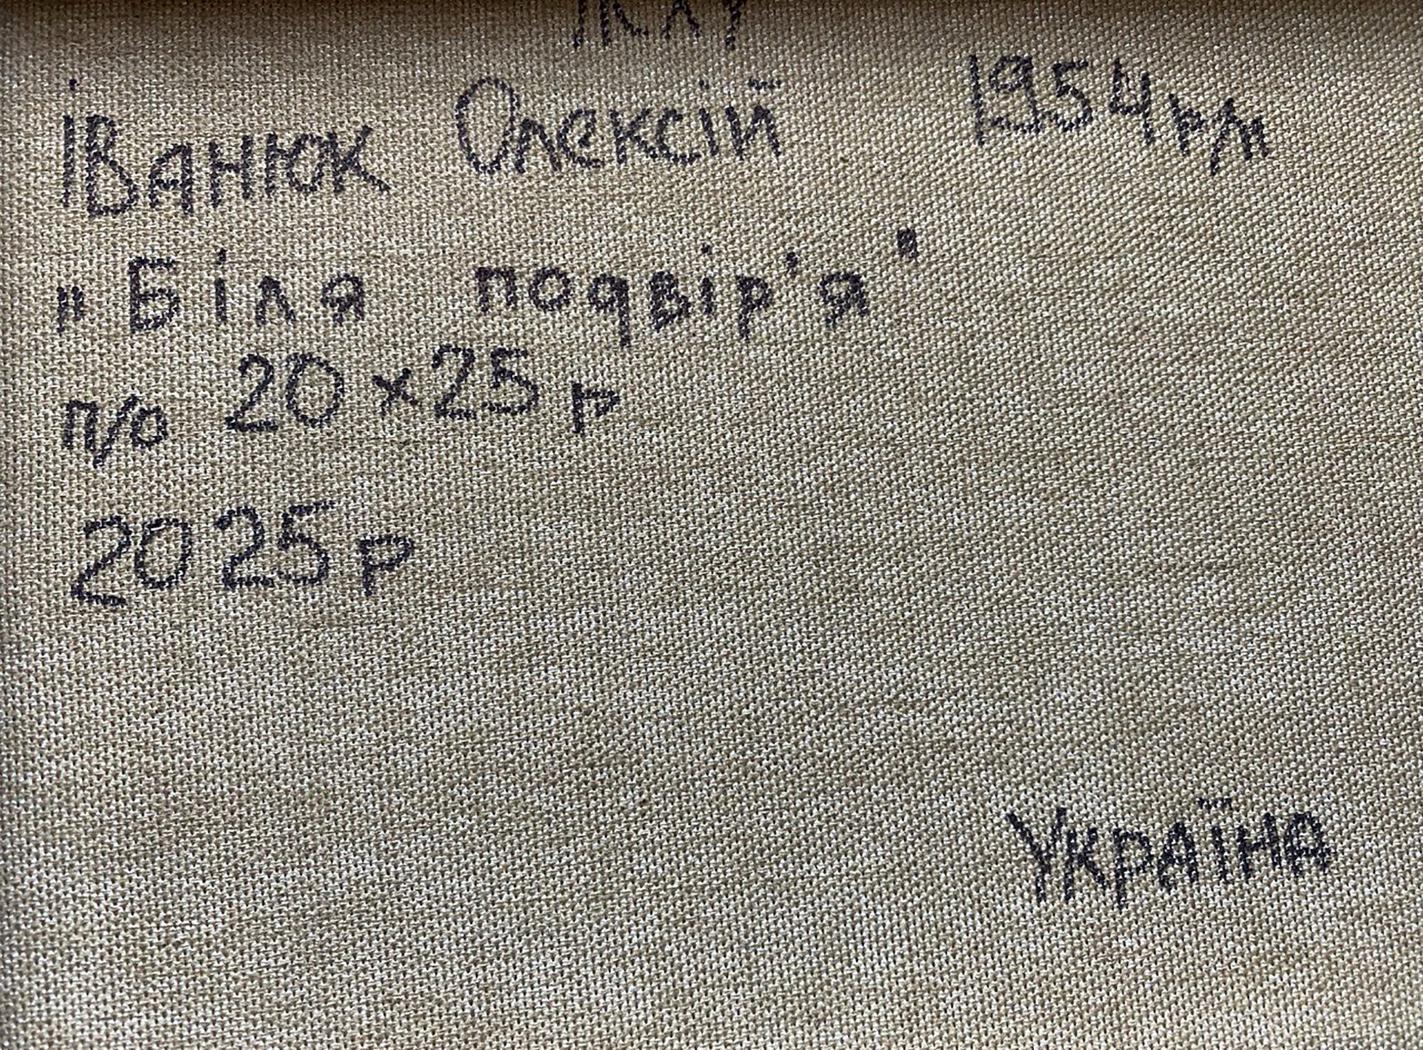 Іванюк Олексій 1954 р/н
„Біля подвір'я"
п/о 20х25 р
2025р
Україна